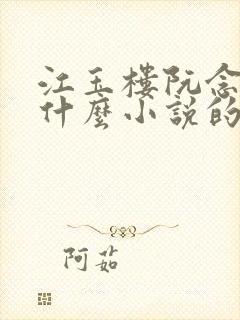 江玉樓阮念
什麼小說的
阿茹